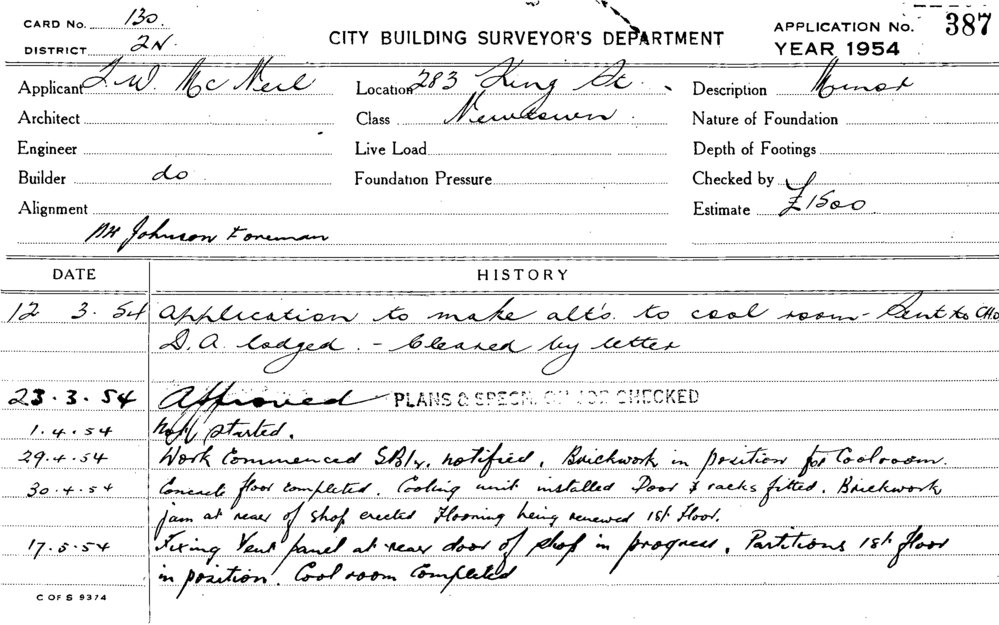 CARD No. 130.
DISTRICT 2N.
CITY BUILDING SURVEYOR'S DEPARTMENT
APPLICATION No. 387
YEAR 1954
Applicant J. W. McNeil Location 283 King St. Description Minor
Architect Class Newtown Nature of Foundation
Engineer Live Load Depth of Footings
Builder do Foundation Pressure Checked by
Alignment Estimate £1500
Johnson Foreman
DATE HISTORY
12 3. 54 Application to make alt's. to cool room - Sent to
D.A. lodged. - Cleared by letter
23.3.54 Approved PLANS & SPECN. ON JOB CHECKED
1.4.54 Not started.
29.4.54 Work Commenced notified. Brickwork in position for Coolroom.
30.4.54 Concrete floor completed. Cooling unit installed Door & racks fitted. Brickwork
jam at rear of shop erected Flooring being renewed 1st floor.
17.5.54 Fixing Vent panel at rear door of shop in progress. Partitions 1st floor
in position. Cool room Completed
C OF S 9374